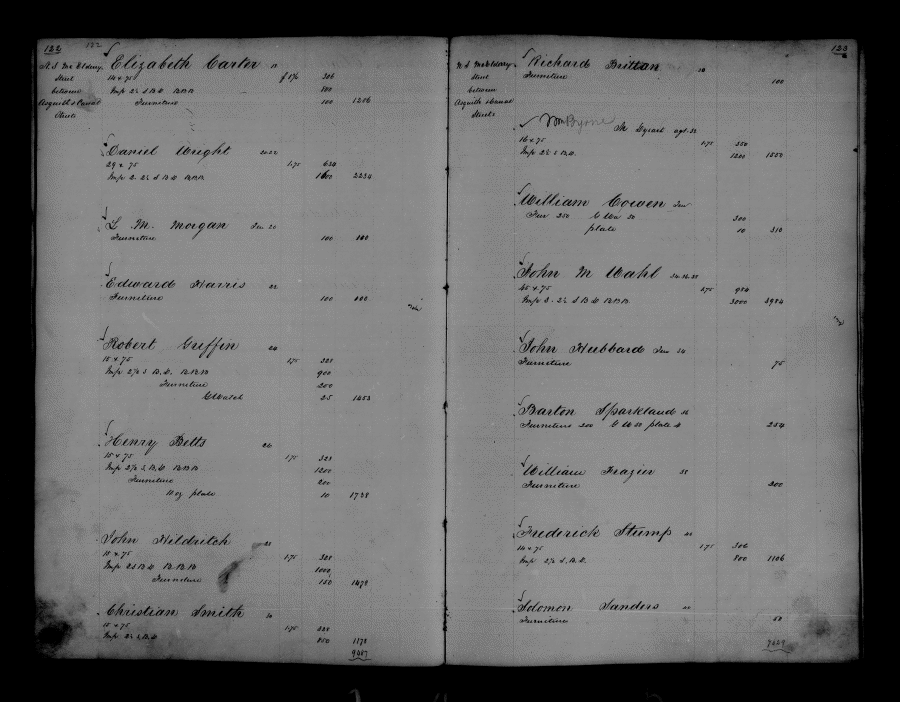 122
122
N. S McElderry
Street
between
Asquith & Canal
Streets
Elizabeth Carter 18
14 x 75 @ 1.75 306
Imp 2½ S B.H B.B.B 800
Furniture 100 1206
Daniel Wright 20.22
29 x 75 1.75 634
Imp 2. 2½ S B.H B.B.B 1600 2234
L M. Morgan Ten 20
Furniture 100 100
Edward Harris 22
Furniture 100 100
Robert Griffin 24
15 x 75 1.75 328
Imp 2½ S B.H. B.B.B 900
Furniture 200
G Watch 25 1453
Henry Betts 26
15 x 75 1.75 328
Imp 2½ S. B.H B.B.B 1200
Furniture 200
11 oz plate 10 1738
John Hildritch 28
15 x 75 1.75 328
Imp 2 S B.H B.B.B 1000
Furniture 150 1478
Christian Smith 30
15 x 75 1.75 328
Imp 2½ S, B.H 850 1178
9487
123
N. S McElderry
Street
between
Asquith & Canal
Streets
Richard Brittan 30
Furniture 100
Wm Byrne
16 x 75 1.75 350
Imp 2½ S B.H. 1200 1550
William Cowen Ten
Fur 250 G Wa 50 300
plate 10 310
John M Wahl 34.36.38
45 x 75 1.75 984
Imp 3. 2½ S B.H B.B.B 3000 3984
John Hubbard Ten 34
Furniture 75
Barton Sparkland 36
Furniture 200 G W 50 plate 4 254
William Frazier 38
Furniture 200
Frederick Stump 40
14 x 75 1.75 306
Imp 2½ S. B.H. 800 1106
Solomon Sanders
Furniture 50
7629